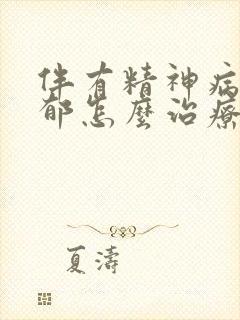 伴有精神病
郁怎麼治療
夏濤